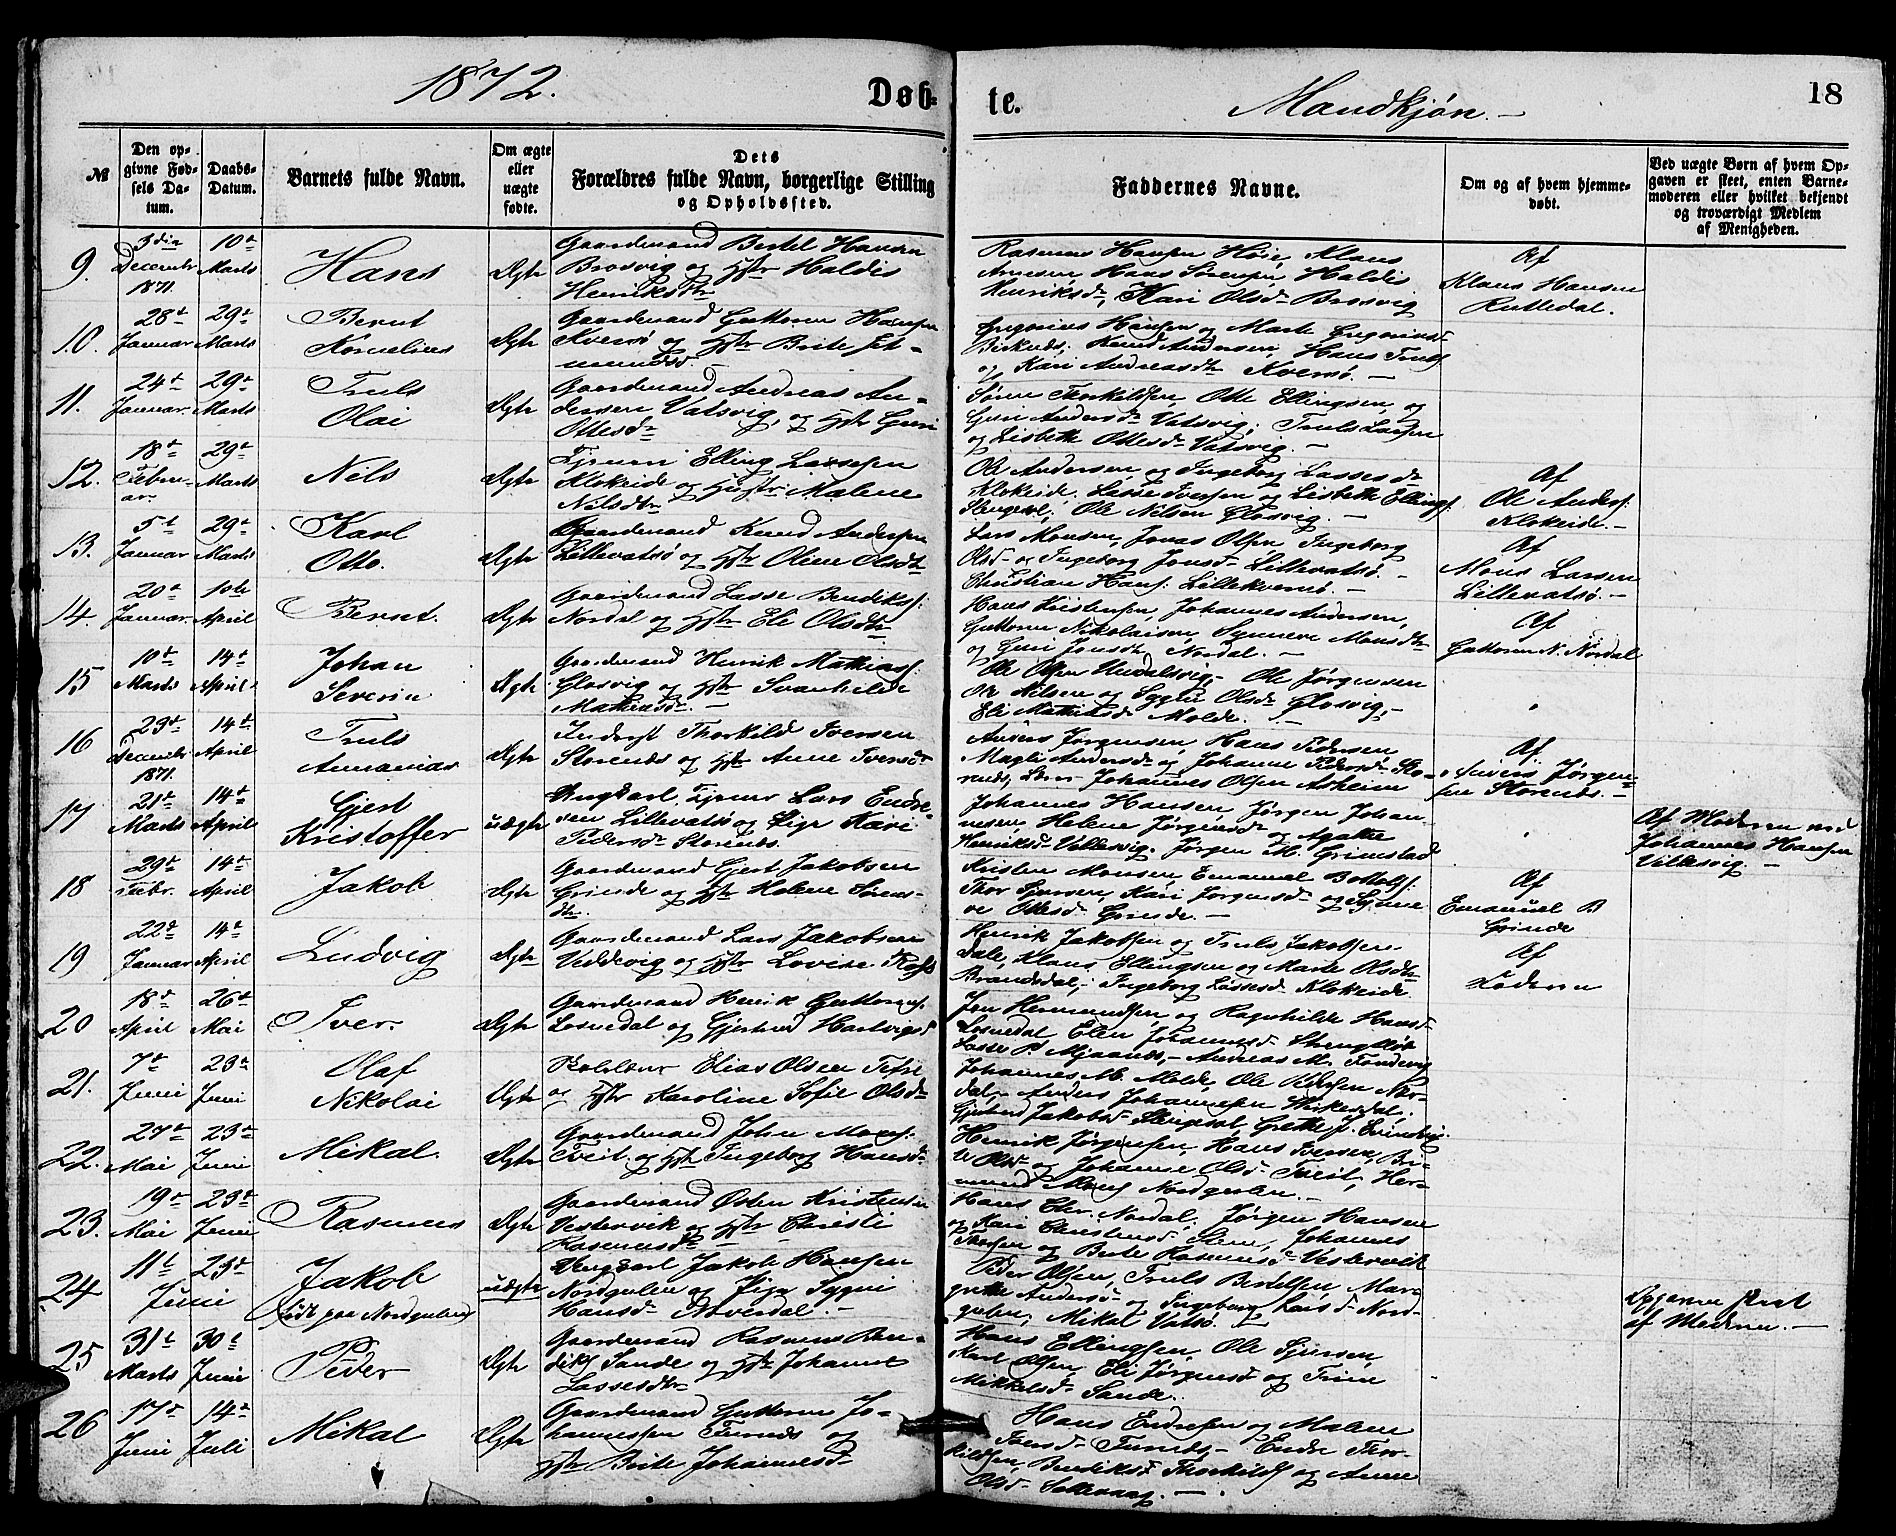 1872.
Døb-
te.
Mandkjøn.-
18
№
Den op-
givne Fød-
sels Da-
tum.
Daabs-
Datum.
Barnets fulde Navn.
Om ægte
eller
uægte
fødte.
Dets
Forældres fulde Navn, borgerlige Stilling
og Opholdssted.
Faddernes Navne.
Om og af hvem hjemme-
døbt.
Ved uægte Børn af hvem Op-
gaven er skeet, enten Barne-
moderen eller hvilket bekjendt
og troværdigt Medlem
af Menigheden.
9.
3die
December
1871.
10de
Marts
Hans
Ægte
Gaardmand Bertel Hansen
Brosvig og Hstr Haldis
Henriksdtr
Rasmus Hansen Høie, Klaus
Arnesen, Hans Sørensen, Haldis
Henriksdr, Kari Olsdr Brosvig
Af
Klaus Hansen
Rutledal.
10.
28de
Januar
29de
Marts
Bernt
Kornelius
Ægte
Gaardmand Guttorm Hansen
Kversø og Hstr Brite
Gregorius Hansen og Marte Gregoriusd
Birknes, Knud Andersen, Hans Truls
og Kari Andreasdtr Kversø. -
11.
24de
Januar.
29de
Marts
Truls
Olai
Ægte
Gaardmand Andreas An-
dersen Vatsvig, og Hstr Guri
Ottesdr
Søren Thorkildsen, Otte Ellingsen, og
Guri Andersdr Vatsvig; Truls Larsen
og Lisbeth Ottesdr Vatsvig. -
12.
18de
Febru-
ar.
29de
Marts
Nils
Ægte
Elling Lassesen
Klokeide og Hustr: Malene
Nilsdtr
Ole Andersen og Ingeborg Lassesdr
Klokeide. Lasse Iversen og Lisbeth Ellings
Ole Nilsen Glosvig. -
Af
Ole Anders:
Klokeide. -
13.
5te
Januar
29de
Marts
Karl
Otto.
Ægte
Gaardmand Knud Andersen
Lillevatsø og Hstr Oline Olsdtr
Lars Monsen, Jonas Olsen, Ingeborg
Olsd og Ingeborg Jonsdr Lillevatsø. -
Christian Hans: Lillekversø. -
Af
Mons Larsen
Lillevatsø. -
14.
20de
Januar.
1ste
April
Bernt.
Ægte
Gaardmand Lasse Bendiks:
Nordal og Hstr Eli Olsdtr
Hans Kristensen, Johannes Andersen,
Guttorm Nikolaisen, Synneve Monsdtr
og Guri Jonsdtr Nordal. -
Af
Guttorm N. Nordal
15
10de
Marts
14de
April
Johan
Severin
Ægte
Gaardmand Henrik Mathias:
Glosvig og Hstr Svanhilde
Mathiasdr. -
Ole Olsen Undalsvig, - Ole Jørgensen
Ole Nilsen og Sygni Olsdr Glosvig, -
Eli Mathiasdr Molde. -
16
23de
December
1871.
14de
April
Truls
Ananias
Ægte
Inderst Thorkild Iversen
Storenes og Hstr Anne Iversdr
Anders Jørgensen, Hans Pedersen,
Magli Andersdr og Johanne Pedersdr Sto-
renes, Johannes Olsen Asheim
Af
Anders Jørgen-
sen Storenes. -
17
21de
Marts
14de
April
Gjert
Kristoffer
uægte
Ungkarl, Lars Endre-
sen Lillevatsø og Pige Kari
Pedersdr Storenes.
Johannes Hansen, Jørgen Johan-
nesen, Helene Jørgensdr og Agathe
Henriksdr Villesvig. Jørgen M. Grimstad
Af Moderen ved
Johannes Hansen
Villesvig. -
18
29de
Febr.
14de
April
Jakob
Ægte
Gaardmand Gjert Jakobsen
Grinde og Hstr Helene Sørens-
dtr.
Kristen Monsen, Emanuel Bottolfs:
Thor Sjursen, Kari Jørgensdr og Synne-
ve Ottesdr Grinde. -
Af
Emanuel B
Grinde
19
22de
Januar
14de
April
Ludvig
Ægte
Gaardmand Lars Jakobsen
Viddevig og Hstr Lovise
Henrik Jakobsen og Truls Jakobsen
Dale, Klaus Ellingsen og Marte Olsdtr
Brandsdal, - Ingeborg Lassesdr Klokeide
Af
Faderen
20
18de
April
26de
Mai
Iver.
Ægte
Gaardmand Henrik Guttorms:
Losnedal og Gjertrud Hartvigsd
Jon Hermundsen, og Ragnhilde Hansdr
Losnedal, Elen Johannesdr
Lasse P. Mjaanes, - Andreas M.
21.
7de
Juni
23de
Juni
Olaf
Nikolai
Ægte
Elias Olsen
og Hstr Karoline Sofie Olsdr
Johannes M. Molde, Ole Pedersen No-
dal, - Anders Johannesen
Gjertrud Jakobsdr, Grethe J.
22.
27de
Mai
23de
Juni
Mikal.
Ægte
Gaardmand John Mons:
Tveit og Hstr Ingeborg Hansdr
Henrik Jørgensen, Hans Iversen, Bri-
te Olsdr og Johanne Olsdr Tveit, Her-
mund Mons Nordgulen. -
23.
19de
Mai
23de
Juni
Rasmus
Ægte
Gaardmand Østen Kristensen
Vestervik og Hstr Christi
Rasmusdtr
Hans Chr. Nordal, Jørgen Hansen
og Kari Christensdr, Johannes
og Brite Rasmusdr Vestervik
24
11te
Juni
23de
Jakob
født paa Nordgulen
uægte
Ungkarl Jakob Hansen
Nordgulen og Pige Sygni
Hansdr. -
Peder Olsen, Truls Bertelsen, Mar-
grethe Andersdr og Ingeborg Larsdr Nord-
gulen, Mikal Vatsø. -
Opgaven skeet
af Moderen. -
25
31te
Marts
30te
Juni
Peder
Ægte
Gaardmand Rasmus Ben-
diks Sande og Hstr Johanne
Lassesdtr
Hans Ellingsen, Ole Sjursen,
Karl Olsen, Eli Jørgensdr og
Mikkelsdr Sande.
26
17de
Juni
14de
Juli
Mikal
Ægte
Gaardmand Guttorm Jo-
hannesen og
Hstr Brite Johannesdr
Hans Endresen og Malene
Endre Thor-
kildsen, Thorkilds og Anne
Olsdr